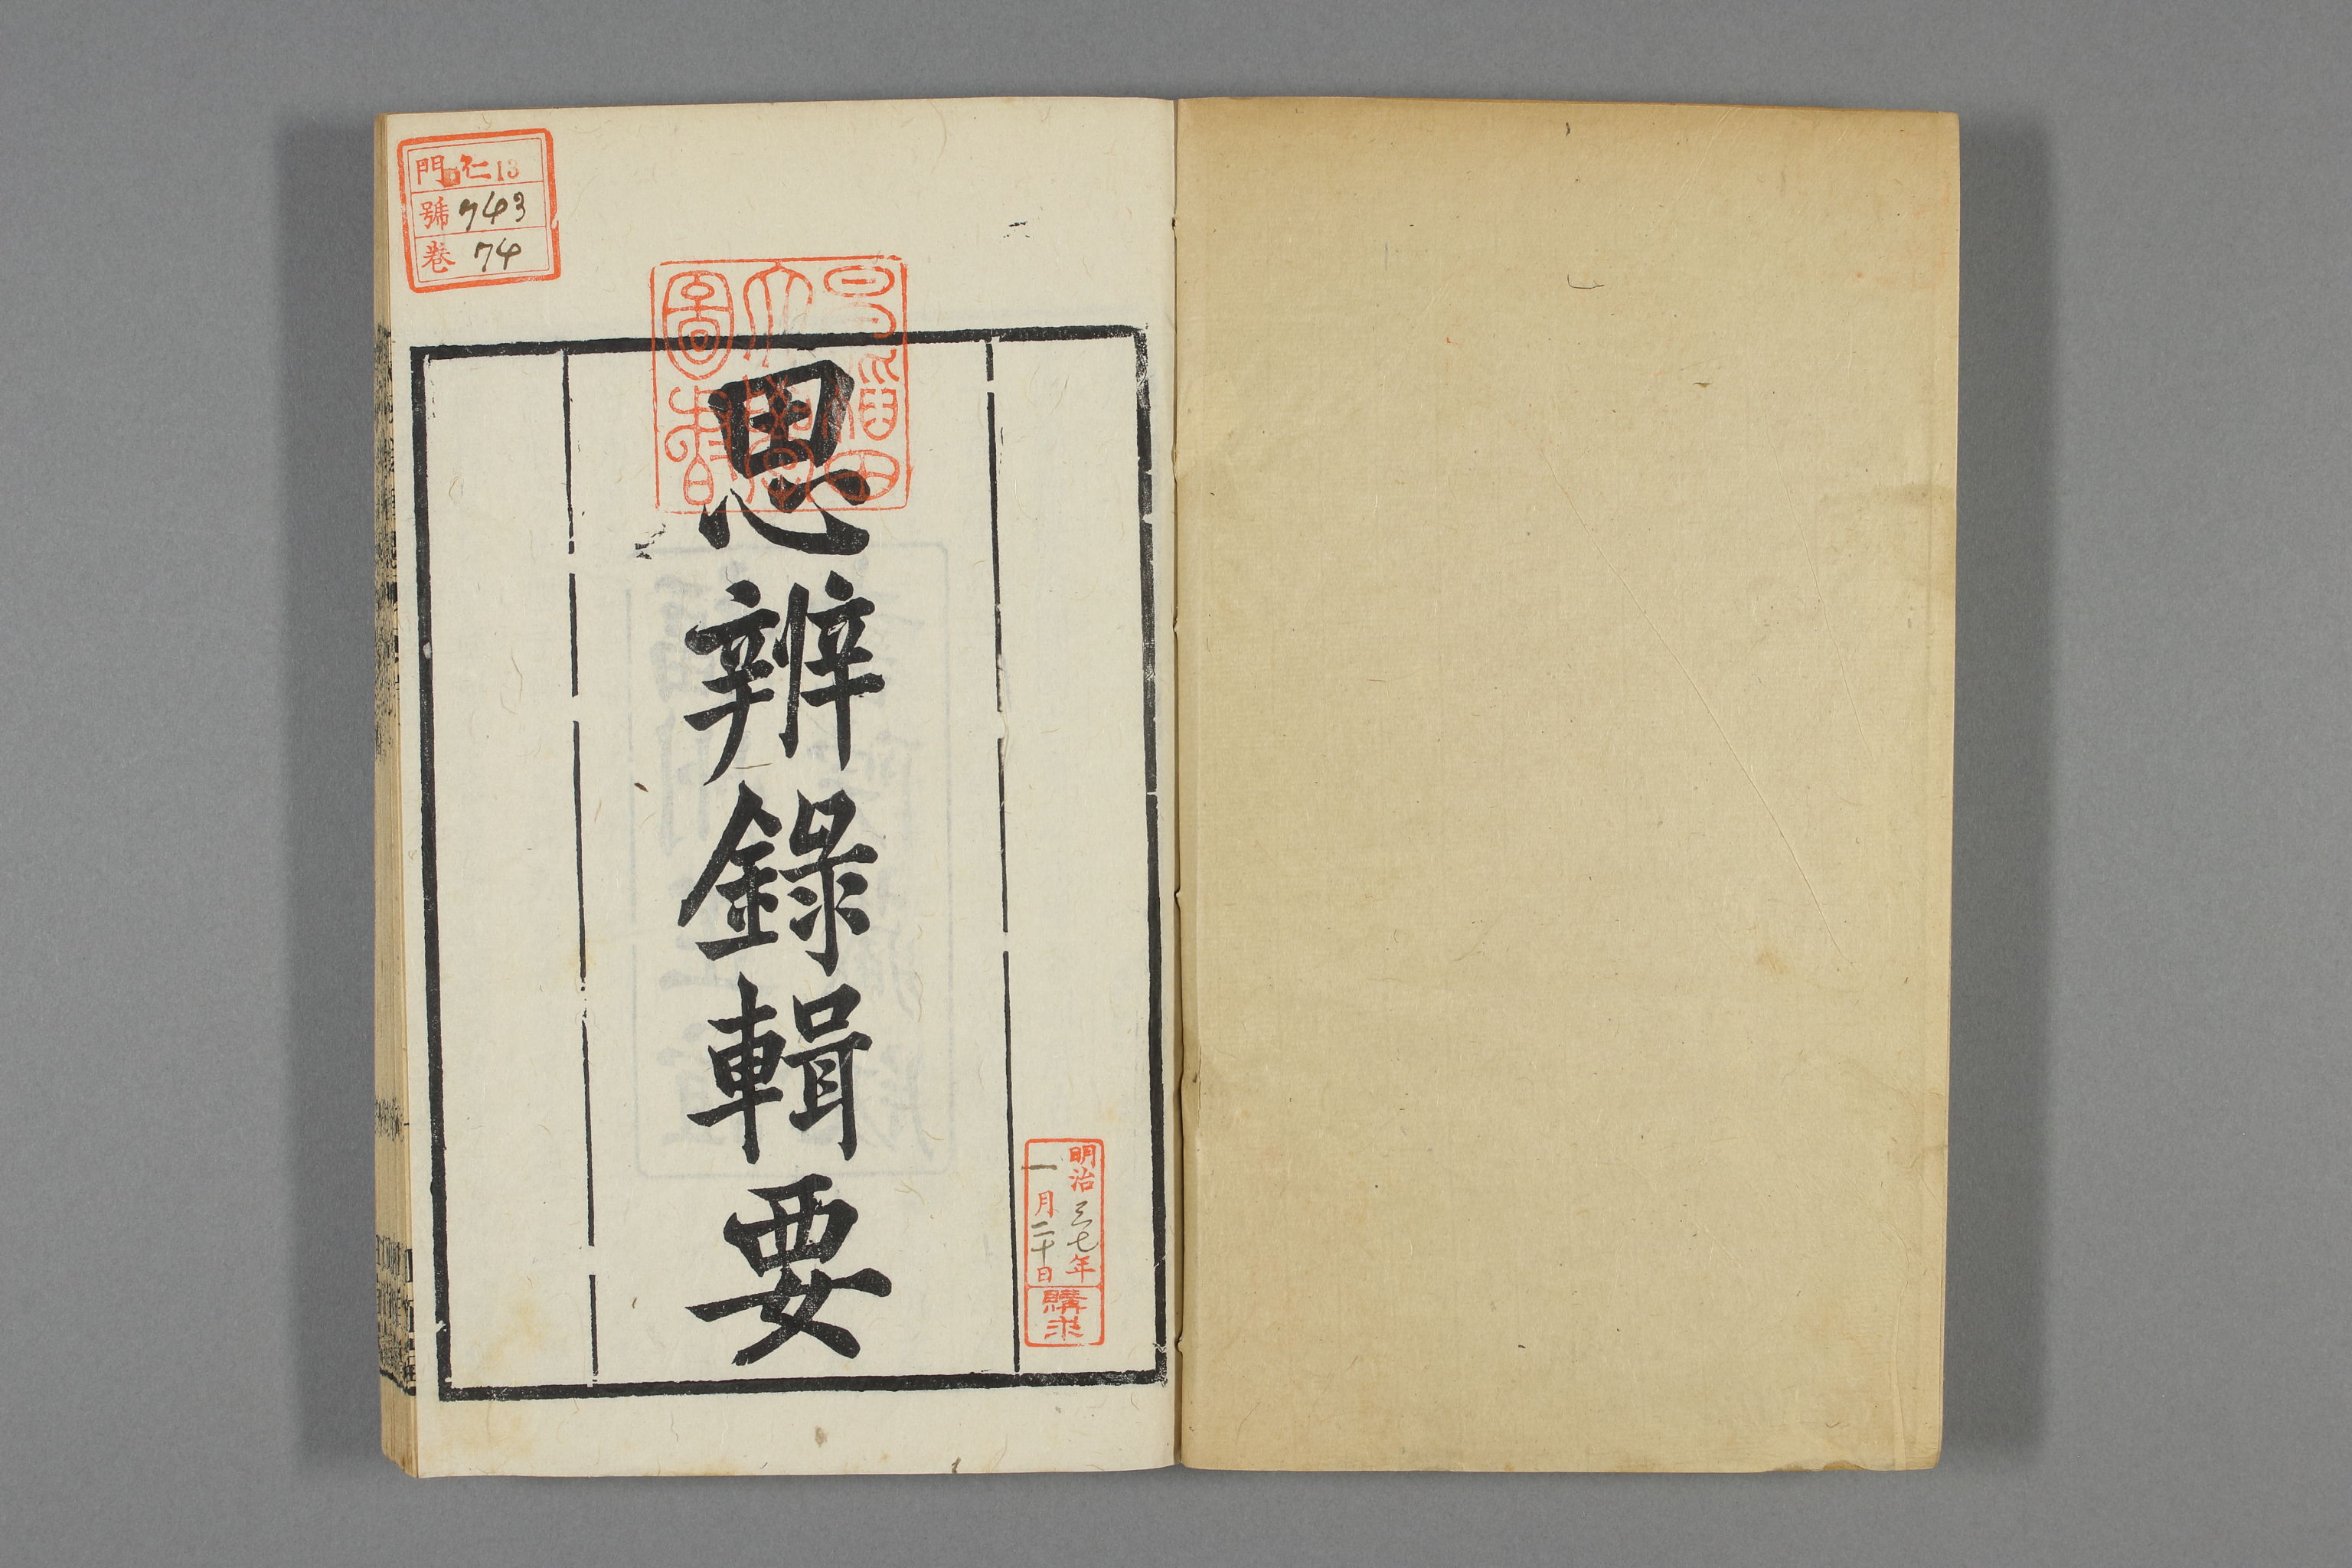 門 仁 13
號 743
卷 74
早稲田
大學
圖書
思辨錄輯要
明治三七年
一月二十日
購求